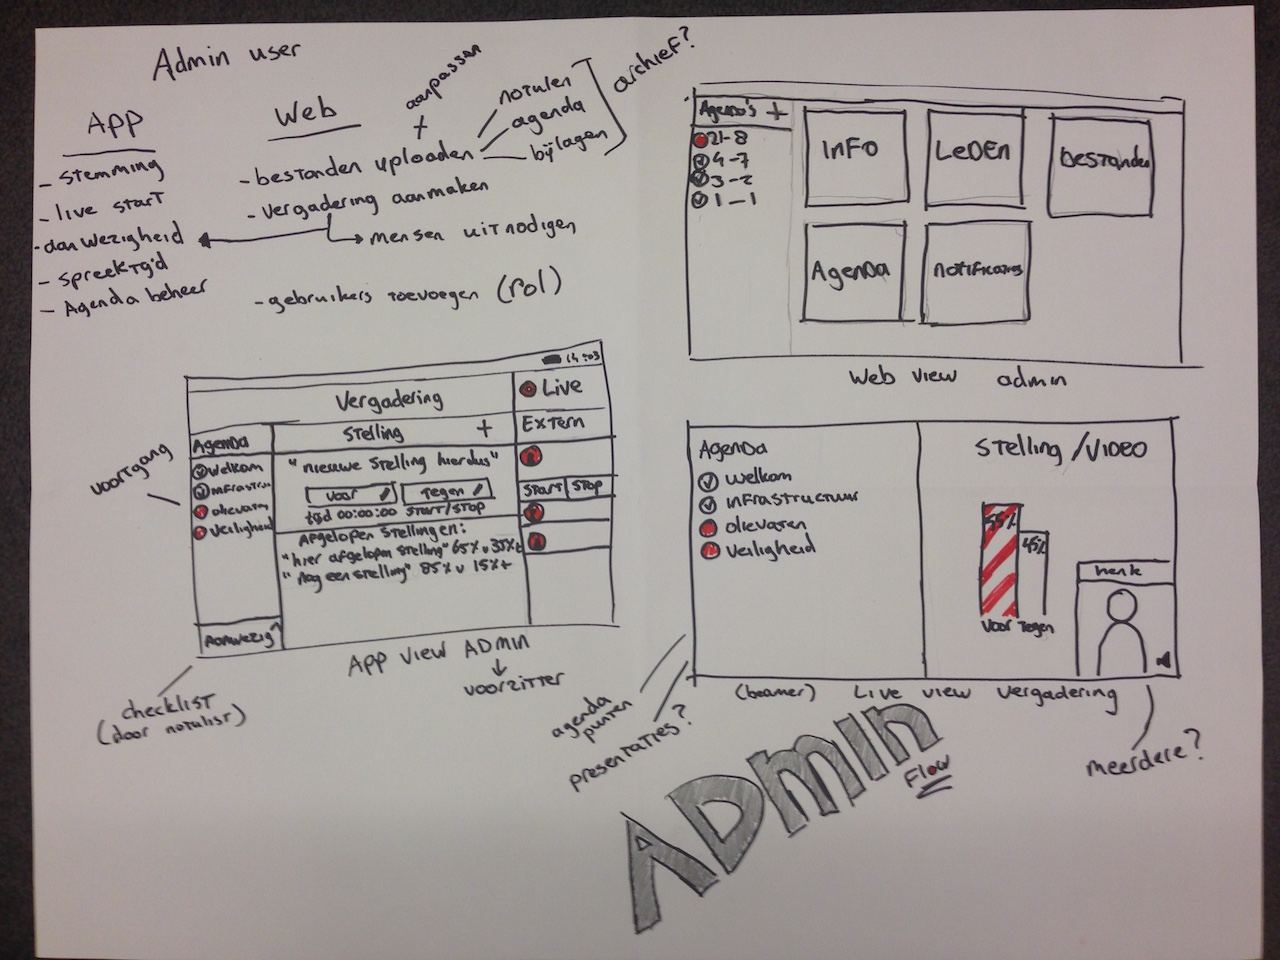 Admin user
App
- Stemming
- live start
- aanwezigheid
- spreektijd
- Agenda beheer
Web
+ aanpassen
- bestanden uploaden
notulen
agenda
bijlagen
archief?
- vergadering aanmaken
mensen uitnodigen
- gebruikers toevoegen (rol)
Agenda's +
21-8
4-7
3-2
1-1
INFO
LEDEN
bestanden
Agenda
notificaties
Web view admin
14:03
Vergadering
Live
Agenda
Stelling +
Extern
Welkom
infrastru
olievaten
Veiligheid
"nieuwe stelling hier dus"
voor
tegen
tijd 00:00:00 START/STOP
Start
Stop
Afgelopen stellingen:
"hier afgelopen stelling" 65% v 35% t
"nog een stelling" 85% v 15% t
Aanwezig
voortgang
App view ADMIN
voorzitter
checklist
(door notulist)
Agenda
Welkom
infrastructuur
olievaten
Veiligheid
Stelling/VIDEO
55%
45%
Voor Tegen
henk
(beamer) Live view vergadering
agenda
punten
presentaties?
meerdere?
ADMIN
Flow